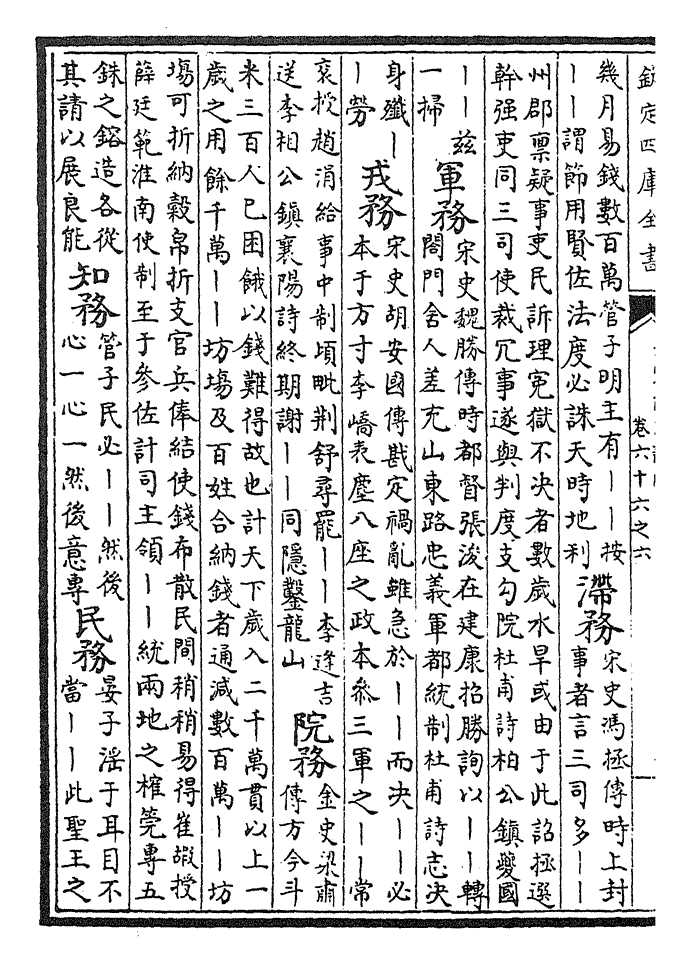 欽定四庫全書
卷六十六之六
幾月易錢數百萬管子明主有丨丨按
丨丨謂節用賢佐法度必誅天時地利
滯務
宋史馮拯傳時上封
事者言三司多丨丨
州郡禀疑事吏民訴理寃獄不决者數歲水旱或由于此詔拯選
幹强吏同三司使裁冗事遂與判度支勾院杜甫詩柏公鎮夔國
丨丨兹
一掃
軍務
宋史魏勝傳時都督張浚在建康招勝詢以丨丨轉
閤門舍人差充山東路忠義軍都統制杜甫詩志决
身殲丨
丨勞
戎務
宋史胡安國傳戡定禍亂雖急於丨丨而决丨丨必
本于方寸李嶠表塵八座之政本叅三軍之丨丨常
衮授趙涓給事中制頃毗荆舒尋罷丨丨李逢吉
送李相公鎮襄陽詩終期謝丨丨同隱鑿龍山
院務
金史梁肅
傳方今斗
米三百人已困餓以錢難得故也計天下歲入二千萬貫以上一
歲之用餘千萬丨丨坊塲及百姓合納錢者通減數百萬丨丨坊
塲可折納榖帛折支官兵俸結使錢布散民間稍稍易得崔嘏授
薛廷範淮南使制至于參佐計司主領丨丨統兩地之榷筦專五
銖之鎔造各從
其請以展良能
知務
管子民必丨丨然後
心一心一然後意專
民務
晏子淫于耳目不
當丨丨此聖王之